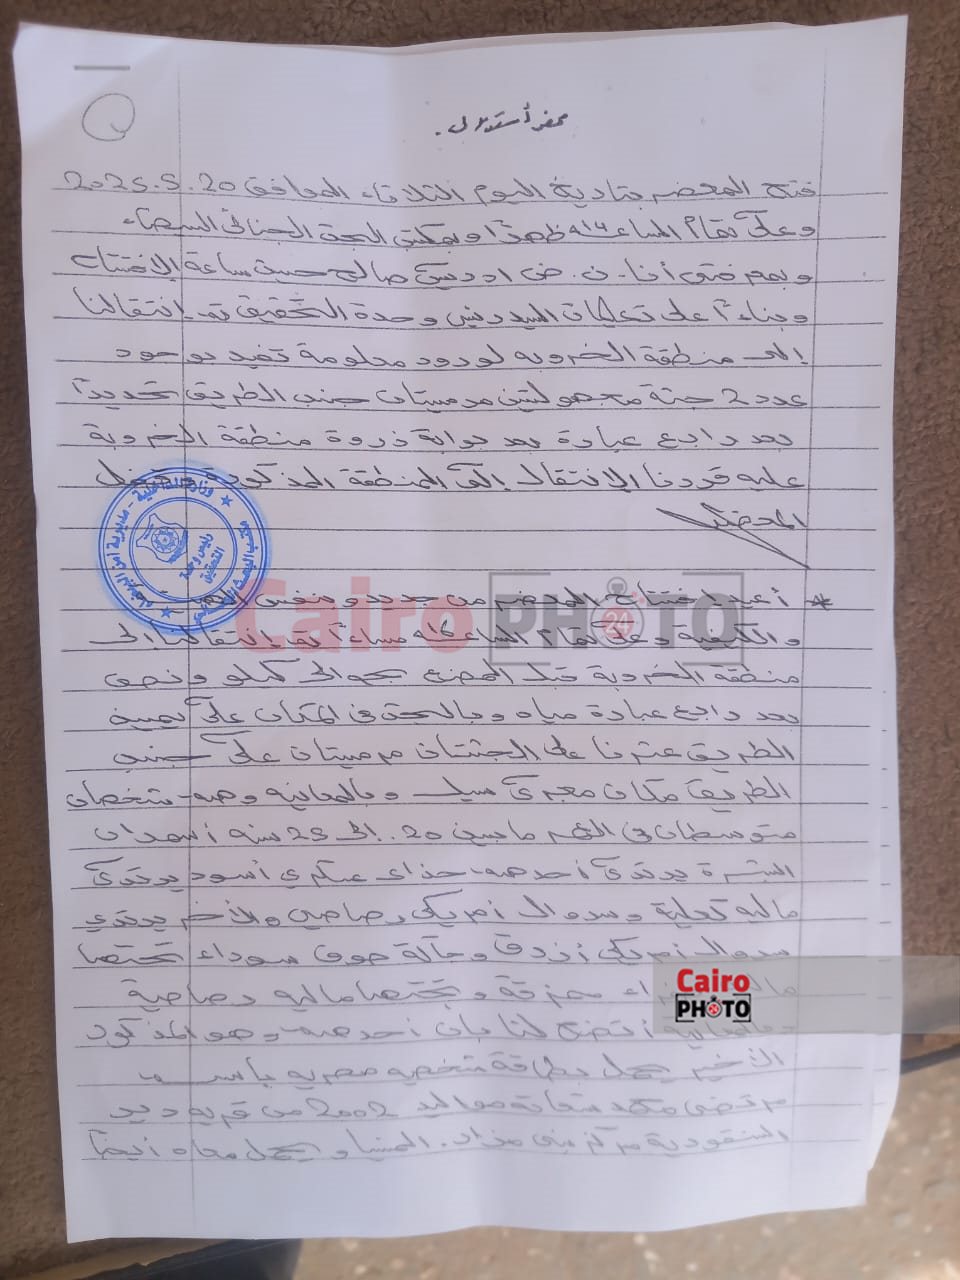 محضر أستدلال.
فتح المحضر بتاريخ اليوم الثلاثاء الموافق 20.5.2025
وعلى تمام الساعة ظهراً وبمكتب البحث الجنائي البيضاء
وبمعرفتي أنا ن. ض ادريس صالح حسين ساعة الافتتاح
وبناءً على تعليمات السيد رئيس وحدة التحقيق تم انتقالنا
إلى منطقة الخروبة لورود معلومة تفيد بوجود
عدد 2 جثة مجهولتين مرميتان جنب الطريق تحديداً
بعد رابع عبارة بعد بوابة ذروة منطقة الخروبة
عليه قررنا الإنتقال إلى المنطقة المذكورة
المحضر
* أعيد افتتاح المحضر من جديد
وعلى تمام الساعة مساءً تم انتقالنا إلى
منطقة الخروبة قبل المصنع بحوالي كيلو ونصف
بعد رابع عبارة مياه وبالبحث في المكان على يمين
الطريق عثرنا على الجثتان مرميتان على جنب
الطريق مكان مجرى سيل وبالمعاينة وجد شخصان
متوسطان في العمر مابين 20 إلى 25 سنه أسمران
البشرة يرتدي أحدهم حذاء عسكري أسود يرتدي
ماليه وسروال أمريكي رصاصي والأخر يرتدي
سروال أمريكي أزرق سوداء تحتها
ممزقة وتحتها ماليه رصاصية
أتضح لنا بان أحدهم وهو المذكور
الأخير يحمل بطاقة شخصيه مصريه بأسم
مرتضى محمد مواليد 2002 من قريه دير
السنقورية مركز بني مزار. المنيا ويحمل معاه أيضاً
وزارة الداخلية
رئيس وحدة
التحقيق
Cairo PHOTO
24
Cairo
PHOTO